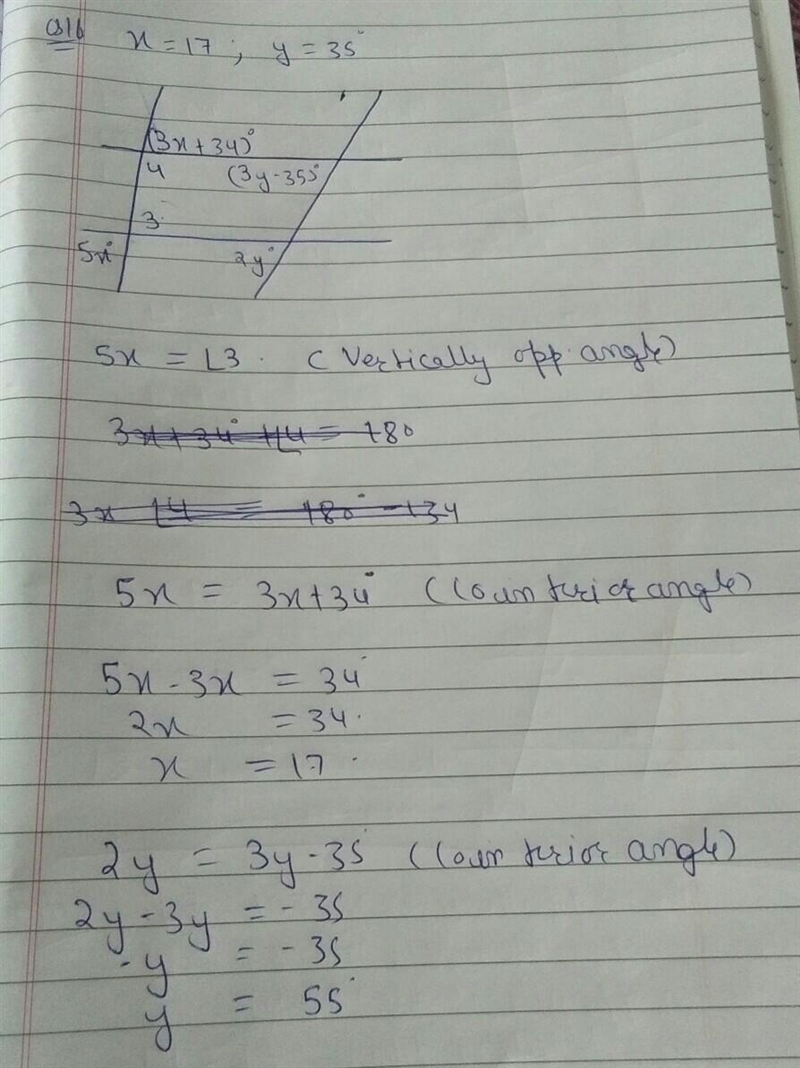 Q16 x = 17 ; y = 35°
(3x + 34)°
4 (3y - 35)°
3
5x° 2y°
5x = L3. (Vertically opp. angle)
3x + 34° + L4 = 180
3x L4 = 180° - 134
5x = 3x + 34° (Counterior angle)
5x - 3x = 34°
2x = 34.
x = 17.
2y = 3y - 35 (Counterior angle)
2y - 3y = - 35
- y = - 35
y = 55°